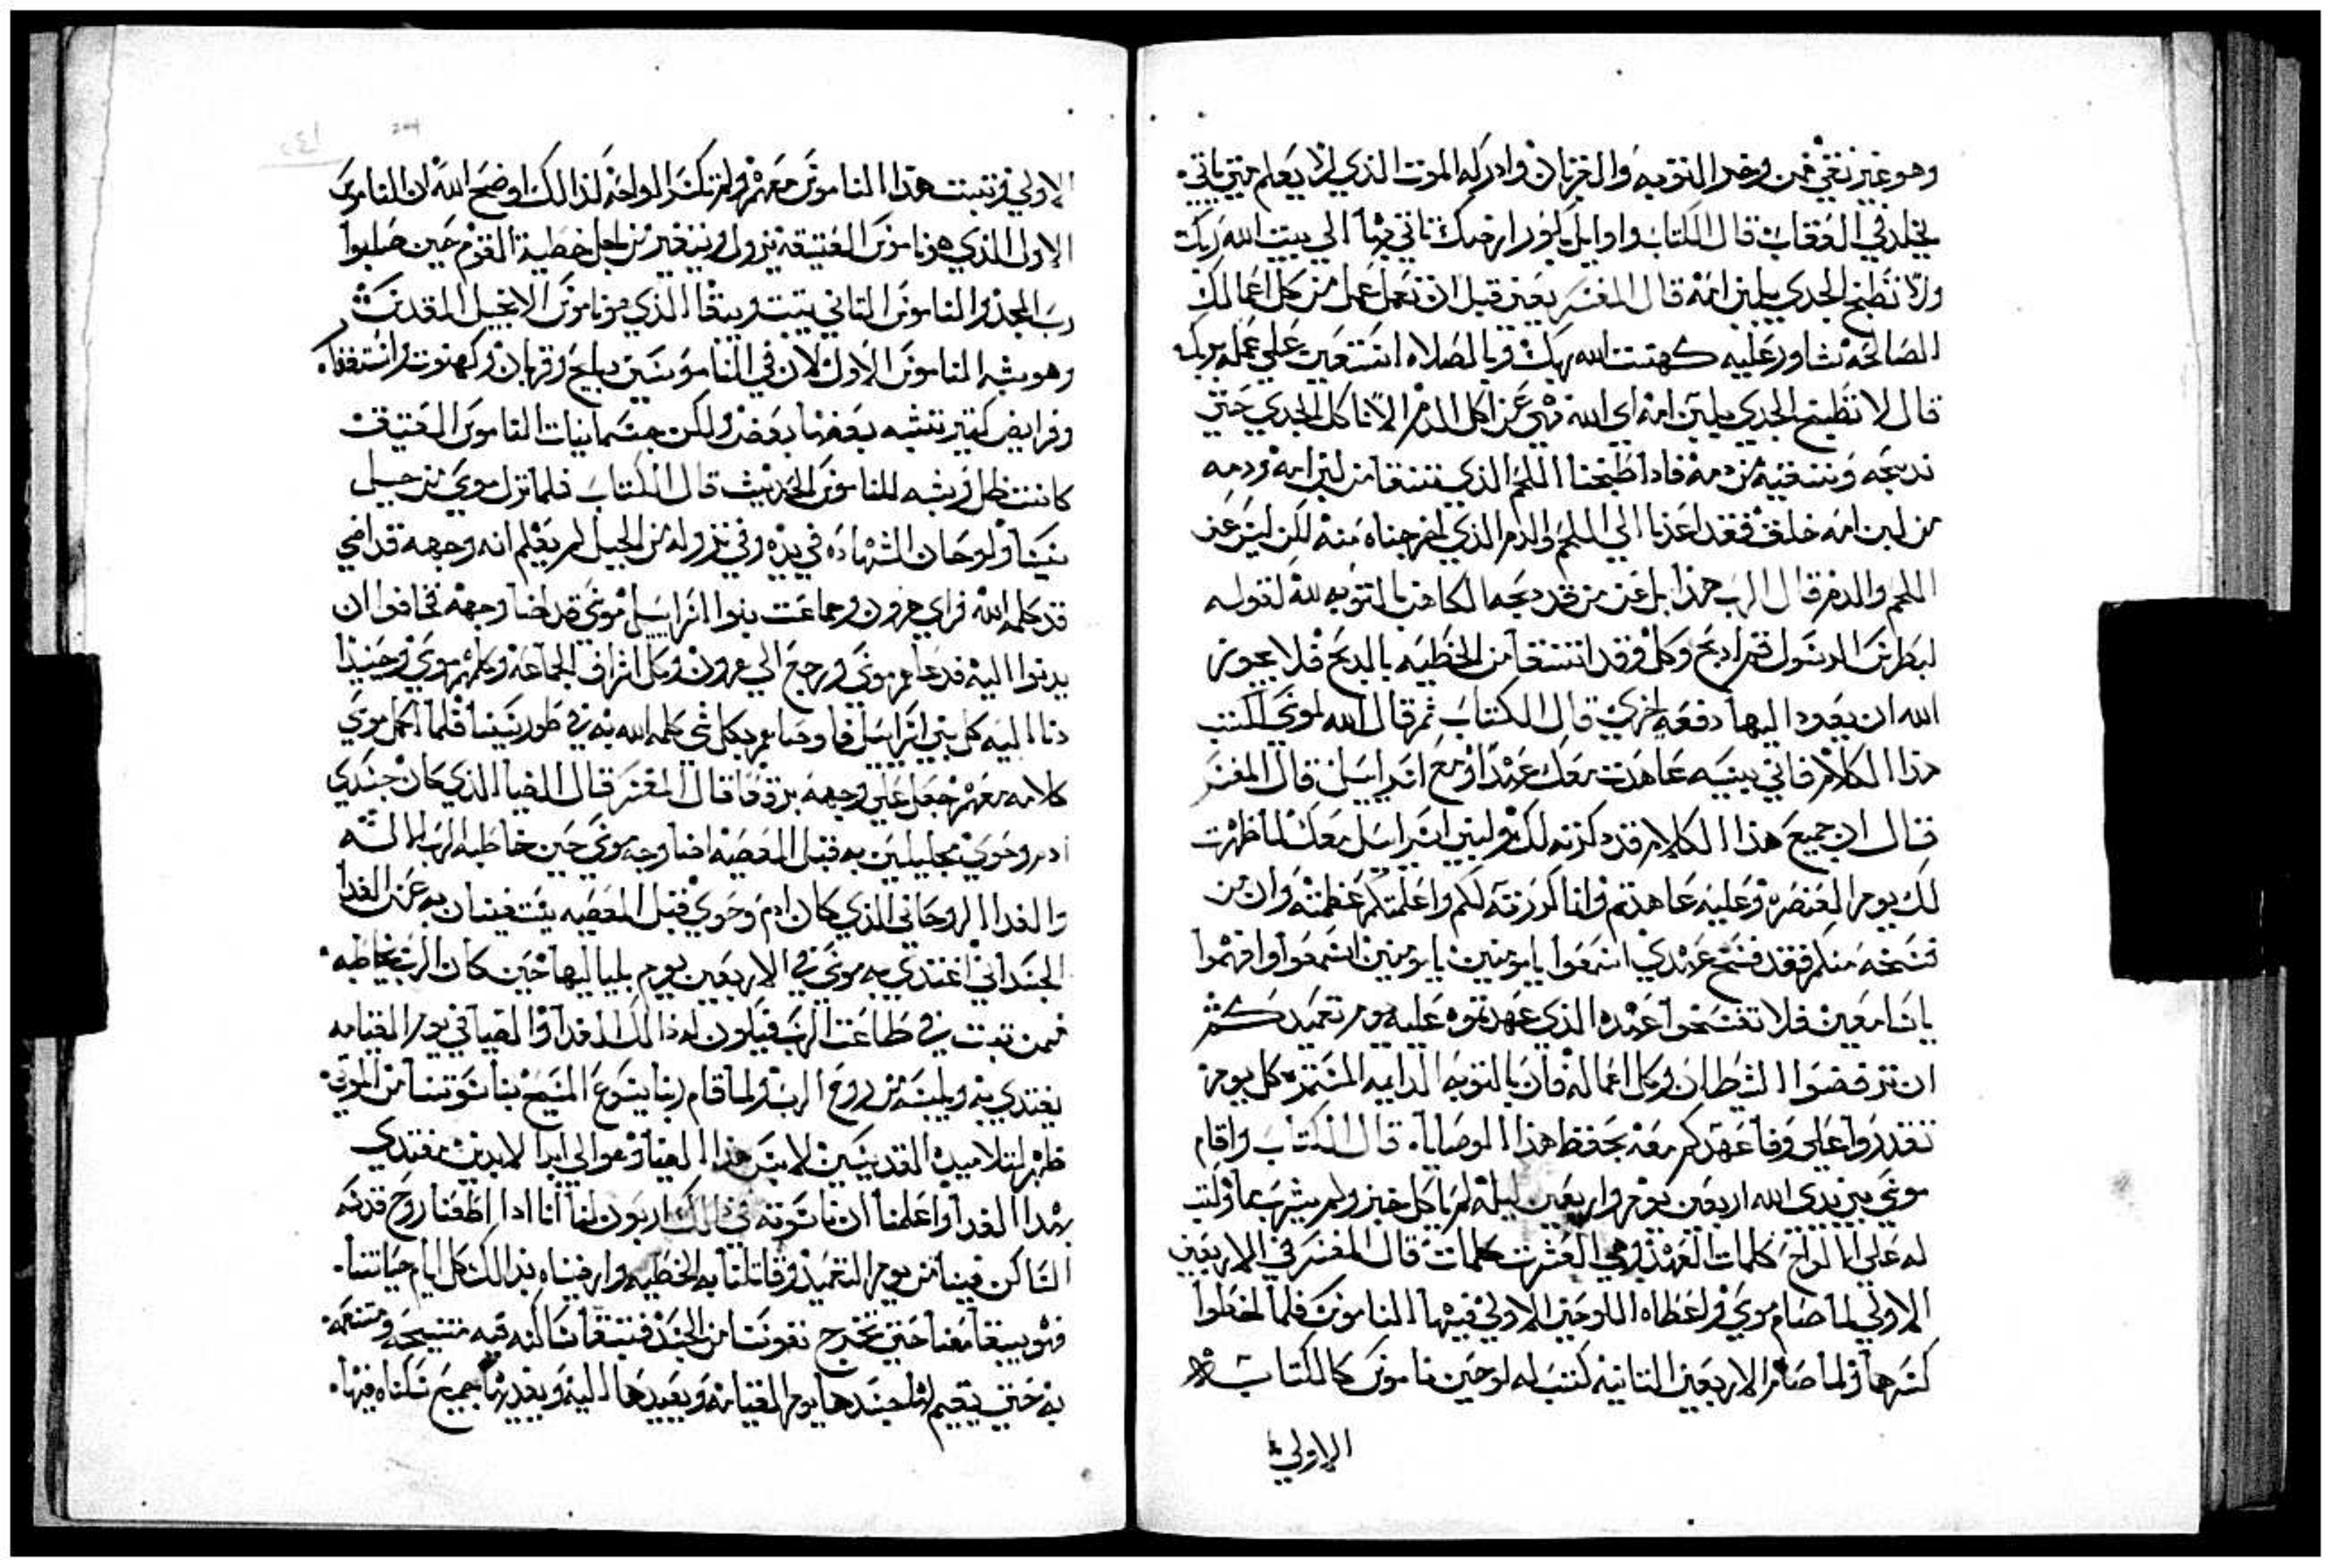 وهو غير نقي فمن وخر التوبه والغفران وادركه الموت الذي لا يعلم متي ياتي
يخلد في العقاب قال الكتاب واوايل بكور ارضك تاتي بها الي بيت الله ربك
ولا تطبخ الجدي بلبن امه قال المفسر يعني قبل ان تعمل عمل من كل اعمالك
الصالحه تشاور عليه كهنت الله ربك وبالصلاه استعين علي عمله بربك
قال لا تطبخ الجدي بلبن امه اي الله نهي عن اكل الدم الا ناكل الجدي حتي
ندبحه وننقيه من دمه فادا طبخنا اللحم الذي تنقا من لبن امه ودمه
من لبن امه خلقت فقد اعدنا الي اللحم والدم الذي اخرجناه منه لكن ليس عن
اللحم والدم قال الرب هذا بل عن من قد دبحه الكاهن بالتوبه لله لقوله
لبطرس الرسول قم ادبح وكل وقد انتقا من الخطيه بالدبح فلا يجوز
الله ان يعود اليها دفعه اخري قال الكتاب ثم قال الله لموسي اكتب
هذا الكلام فاني بينيه عاهدت معك عهدا ومع اسراييل قال المفسر
قال ان جميع هذا الكلام قد دكرته لك ولبني اسراييل معك لما ظهرت
لك يوم العنصره وعليه عاهدتهم وانا كررته لكم واعلمتكم عظمته وان من
فسخه منكم فقد فسخ عهدي اسمعوا يا مومنين يا مومنين اسمعوا وافهموا
يا سامعين فلا تفسخوا عهده الذي عهدتموه عليه يوم تعميدكم
ان ترفضوا الشيطان وكل اعماله فان بالتوبه الدايمه المستمره كل يوم
تقدروا علي وفا عهدكم معه بحفظ هذا الوصايا قال الكتاب واقام
موسي بين يدي الله اربعين يوم واربعين ليله لم ياكل خبز ولم يشرب ما وكتب
له علي الالواح كلمات العهد وهي العشرت كلمات قال المفسر في الاربعين
الاولي لما صام موسي واعطاه اللوحين الاولي فيها الناموس فلما اخطوا
كسرها ولما صام الاربعين التانيه كتب له لوحين ناموس كالكتاب
الاولي
الاولي وتبتت هذا الناموس معهم ولم تكسر الواحه لذالك اوضح الله ان الناموس
الاول الذي هو ناموس العتيقه يزول ويتغير من اجل خطية القوم حين صلبوا
رب المجد والناموس التاني يتبت ويبقا الذي هو ناموس الانجيل المقدس
وهو يشبه الناموس الاول لان في الناموسين دبايح وقربان وكهنوت واستغفار
وفرايض كتير تشبه بعضها بعض ولكن جسمانيات الناموس العتيقه
كانت ظل وشبه للناموس الحديت قال الكتاب فلما نزل موسي من جبل
سينا ولوحان الشهاده في يده وفي نزوله من الجبل لم يعلم انه وجهه قد اضي
قد كلمه الله فراي هرون وجماعت بنوا اسراييل موسي قد اضا وجهه فخافوا ان
يدنوا اليه فدعاهم موسي ورجع الي هرون وكل اشراف الجماعه وكلمهم موسي وحينيدا
دنا اليه كل بني اسراييل فاوصاهم بكل شي كلمه الله به في طور سينا فلما اكمل موسي
كلامه معهم جعل علي وجهه برقعا قال المفسر قال الضيا الذي كان جسدي
ادم وحوي مجللين به قبل المعصيه اضا وجه موسي حين خاطبه الرب
والغدا الروحاني الذي كان ادم وحوي قبل المعصيه يستغنيان به عن الغدا
الجسداني اغتدي به موسي في الاربعين يوم بلياليها حين كان الرب يخاطبه
فمن تبت في طاعت الرب فيكون له ذالك الغدا والضيا في يوم القيامه
يغتدي به ويلبسه من روح الرب ولما قام ربنا يسوع المسيح بناسوتنا من الموتي
ظهر لتلاميده القديسين لابس هذا الضيا وهو الي ابد الابدين مغتدي
بهدا الغدا واعلمنا ان ناسوته في ذالك اربون لنا اننا ادا اطعنا روح قدسه
الساكن فينا من يوم التعميد وقاتلنا به الخطيه وارضيناه بدالك كل ايام حياتنا
فهو يبقا معنا حتي تخرج نفوسنا من الجسد فتبقا ساكنه فيه متسحه ومتنعمه
به حتي يقيم لها جسدها يوم القيامه ويعيدها اليه ويغديها بجميع سكناه فيها